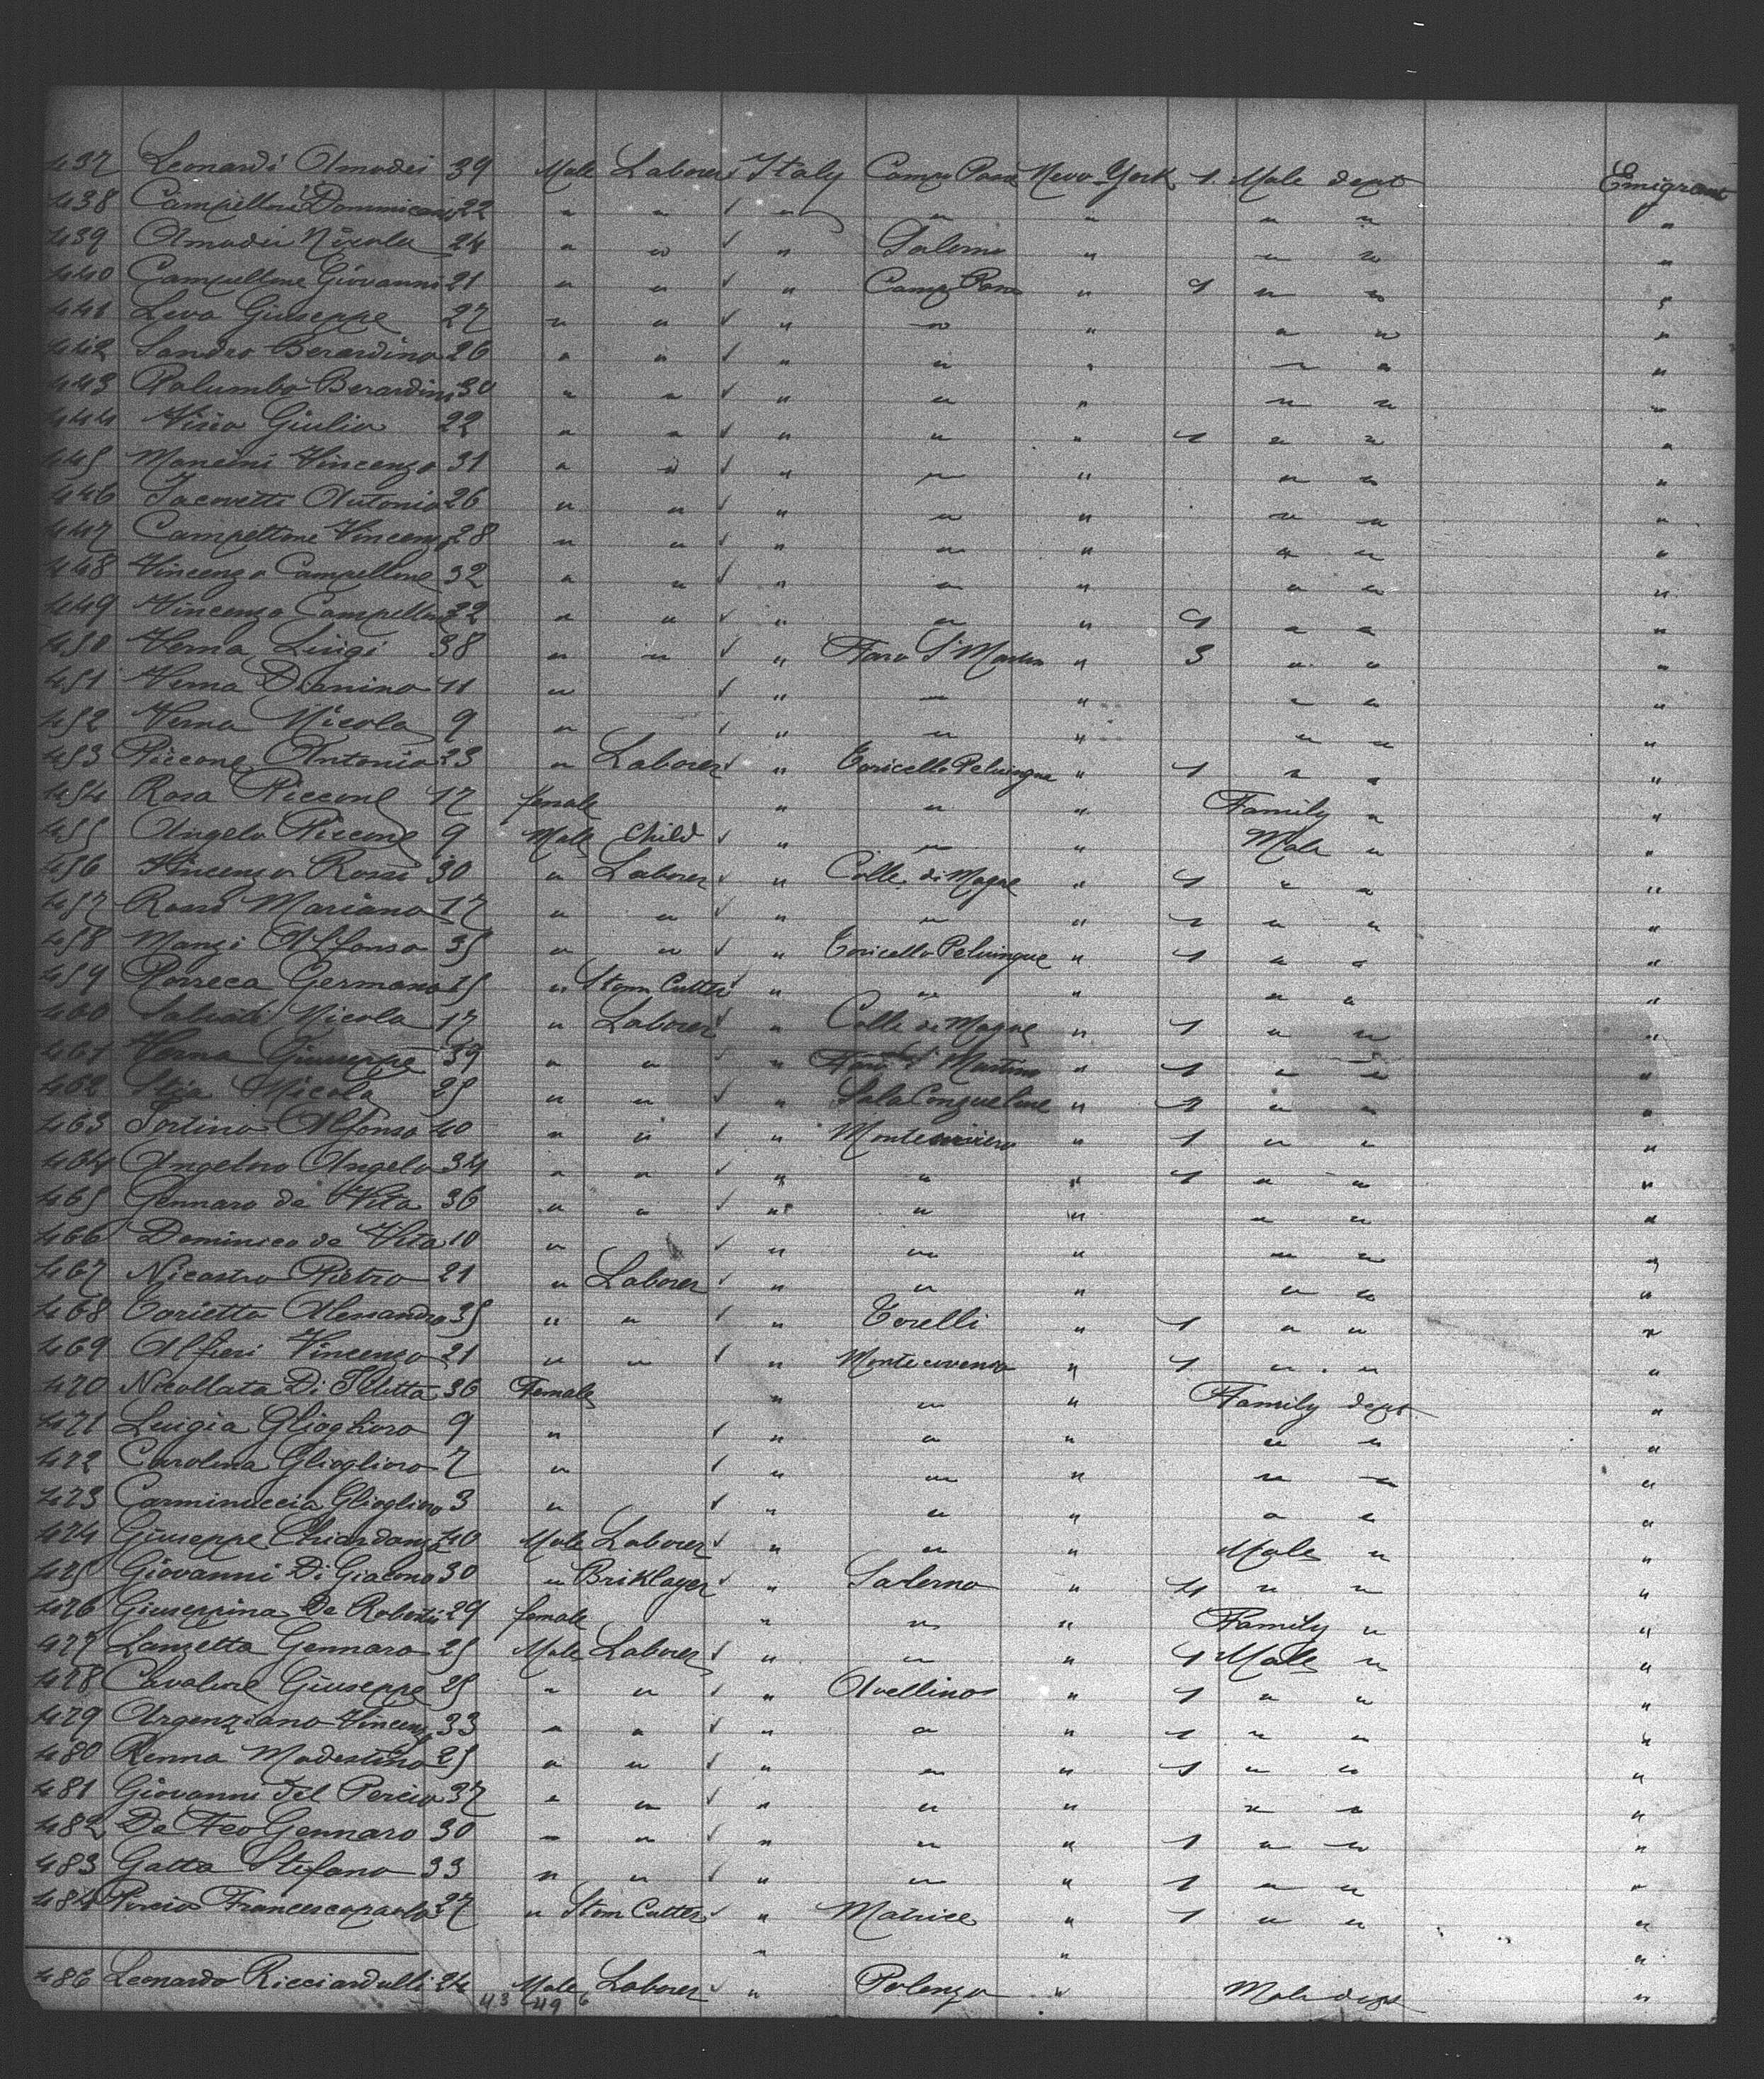 437 Leonardi Amodei 39 Male Laborer Italy Campo Basso New York 1 Male dept Emigrant
438 Campellone Dommenico 22 " " " " " " " "
439 Amodei Nicola 24 " " " Salerno " " " "
440 Campellone Giovanni 21 " " " Campo Basso " 1 " " "
441 Leva Giuseppe 27 " " " " " " " "
442 Sandro Berardino 26 " " " " " " " "
443 Palumbo Berardino 30 " " " " " " " "
444 Giulio 22 " " " " " 1 " " "
445 Mancini Vincenzo 31 " " " " " " " "
446 Iacovetti Antonio 26 " " " " " " " "
447 Campellone Vincenzo 28 " " " " " " " "
448 Vincenzo Campellone 32 " " " " " " " "
449 Vincenzo Campellone 22 " " " " " 1 " " "
450 Verna Luigi 38 " " " Fara S Martino " 3 " " "
451 Verna Donino 11 " " " " " " "
452 Verna Nicola 9 " " " " " " "
453 Piccone Antonio 23 " Laborer " Toricella Peligna " 1 " " "
454 Rosa Piccone 17 female " " " Family " "
455 Angelo Piccone 9 Male Child " " " Male " "
456 Vincenzo Rossi 30 " Laborer " Colle di Magne " 1 " " "
457 Rossi Mariano 17 " " " " " 1 " " "
458 Manzi Alfonso 35 " " " Toricella Peligna " 1 " " "
459 Porreca Germano 15 " Stom Cutter " " " " " "
460 Salvati Nicola 17 " Laborer " Colle di Magne " 1 " " "
461 Verna Giuseppe 39 " " " Fara S Martino " 1 " " "
462 Nicola 25 " " " Sala Conzueline " 1 " " "
463 Sortino Alfonso 40 " " " " 1 " " "
464 Angeloro Angelo 34 " " " " " 1 " " "
465 Gennaro de Vita 36 " " " " " " " "
466 Dominico de Vita 10 " " " " " " "
467 Nicastro Pietro 21 " Laborer " " " " " "
468 Torietta Alessandro 35 " " " Torelli " 1 " " "
469 Alfieri Vincenzo 21 " " " " 1 " " "
470 Nicollata Di 36 Female " " " Family dept "
471 Luigia Glioglioro 9 " " " " " " "
472 Carolina Glioglioro 7 " " " " " " "
473 Carminuccia Glioglioro 3 " " " " " " "
474 Giuseppe 40 Male Laborer " " " Male " "
475 Giovanni Di Giacomo 30 " Briklayer " Salerno " 4 " " "
476 Giuseppina De Robertis 29 female " " " Family " "
477 Lanzetta Gennaro 25 Male Laborer " " " 1 Male " "
478 Cavaliere Giuseppe 25 " " " Avellino " 1 " " "
479 Argenziano Vincenzo 33 " " " " " 1 " " "
480 Renna Modestino 25 " " " " " 1 " " "
481 Giovanni del Percio 37 " " " " " " " "
482 De Feo Gennaro 30 " " " " " 1 " " "
483 Gatta Stefano 33 " " " " " 1 " " "
484 Francescopaolo 27 " Stom Cutter " Matrice " 1 " " "
" " "
486 Leonardo Ricciardulli 24 Male Laborer " Potenza " Male dept "
43 49 6